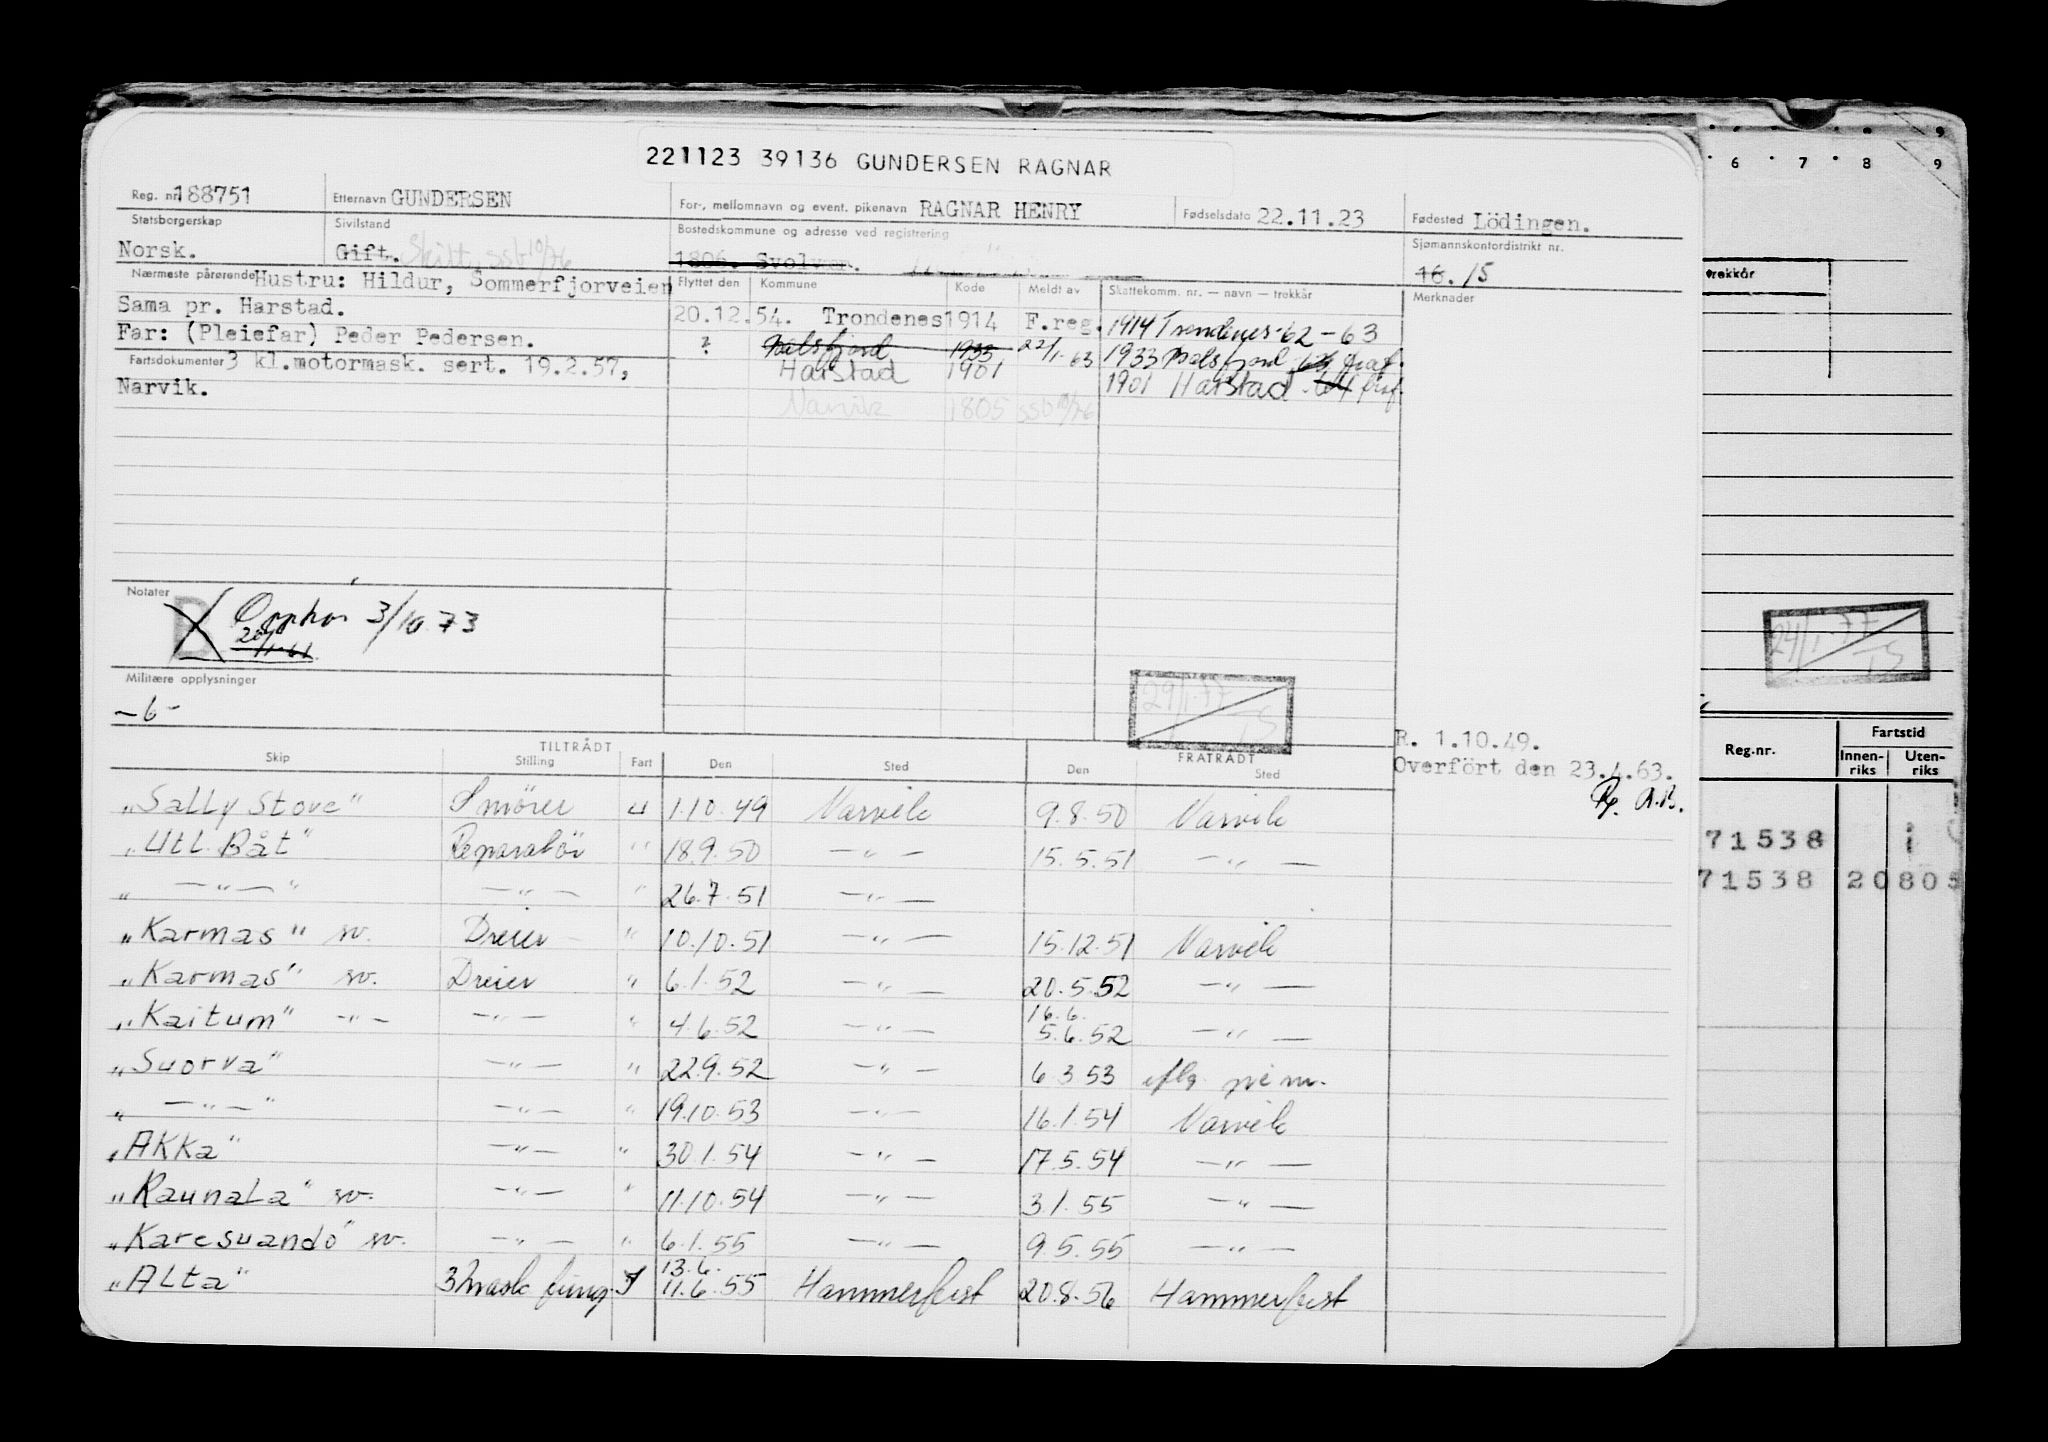 6 7 8 9
221123 39136 GUNDERSEN RAGNAR
Reg. nr. 188751 Etternavn GUNDERSEN For-, mellomnavn og event. pikenavn RAGNAR HENRY Fødselsdato 22.11.23 Fødested Lödingen.
Statsborgerskap Norsk. Sivilstand Gift. Skilt, ssb 10/76 Bostedskommune og adresse ved registrering 1806. Svolvær. Sjømannskontordistrikt nr. 16. 15
Nærmeste pårørende Hustru: Hildur, Sommerfjorveien Flyttet den Kommune Kode Meldt av Skattekomm. nr. — navn — trekkår Merknader
Sama pr. Harstad. 20.12.54. Trondenes 1914 F.reg. 1914 Trondenes 62-63
Far: (Pleiefar) Peder Pedersen. ? Balsfjord 1933 22/1-63 1933 Balsfjord
Fartsdokumenter 3 kl.motormask. sert. 19.2.57, Harstad 1901 1901 Harstad 64
Narvik. Narvik 1805 ssb 10/76
trekkår
Notater
B Opphør 3/10.73
Militære opplysninger
-6-
29/1-77 TS
24/1-77 TS
R. 1.10.49.
Overfört den 23.4.63.
A.B.
TILTRÅDT FRATRÅDT
Skip Stilling Fart Den Sted Den Sted
Reg.nr. Fartstid Innen-riks Uten-riks
71538 i
71538 20805
"Sally Stove" Smører U 1.10.49 Narvik 9.8.50 Narvik
"Utl. Båt" Reparatör " 18.9.50 -"- 15.5.51 -"-
" -"- " -"- " 26.7.51 -"-
"Karmas" sv. Dreier " 10.10.51 -"- 15.12.51 Narvik
"Karmas" sv. Dreier " 6.1.52 -"- 20.5.52 -"-
"Kaitum" -"- -"- " 4.6.52 -"- 16.6. 5.6.52 -"-
"Suorva" -"- " 22.9.52 -"- 6.3.53
" -"- " -"- " 19.10.53 -"- 16.1.54 Narvik
"Akka" -"- " 30.1.54 -"- 17.5.54 -"-
"Raunala" sv. -"- " 11.10.54 -"- 3.1.55 -"-
"Karesuando" sv. -"- " 6.1.55 -"- 9.5.55 -"-
"Alta" 3 mask fung. 13.6. 11.6.55 Hammerfest 20.8.56 Hammerfest